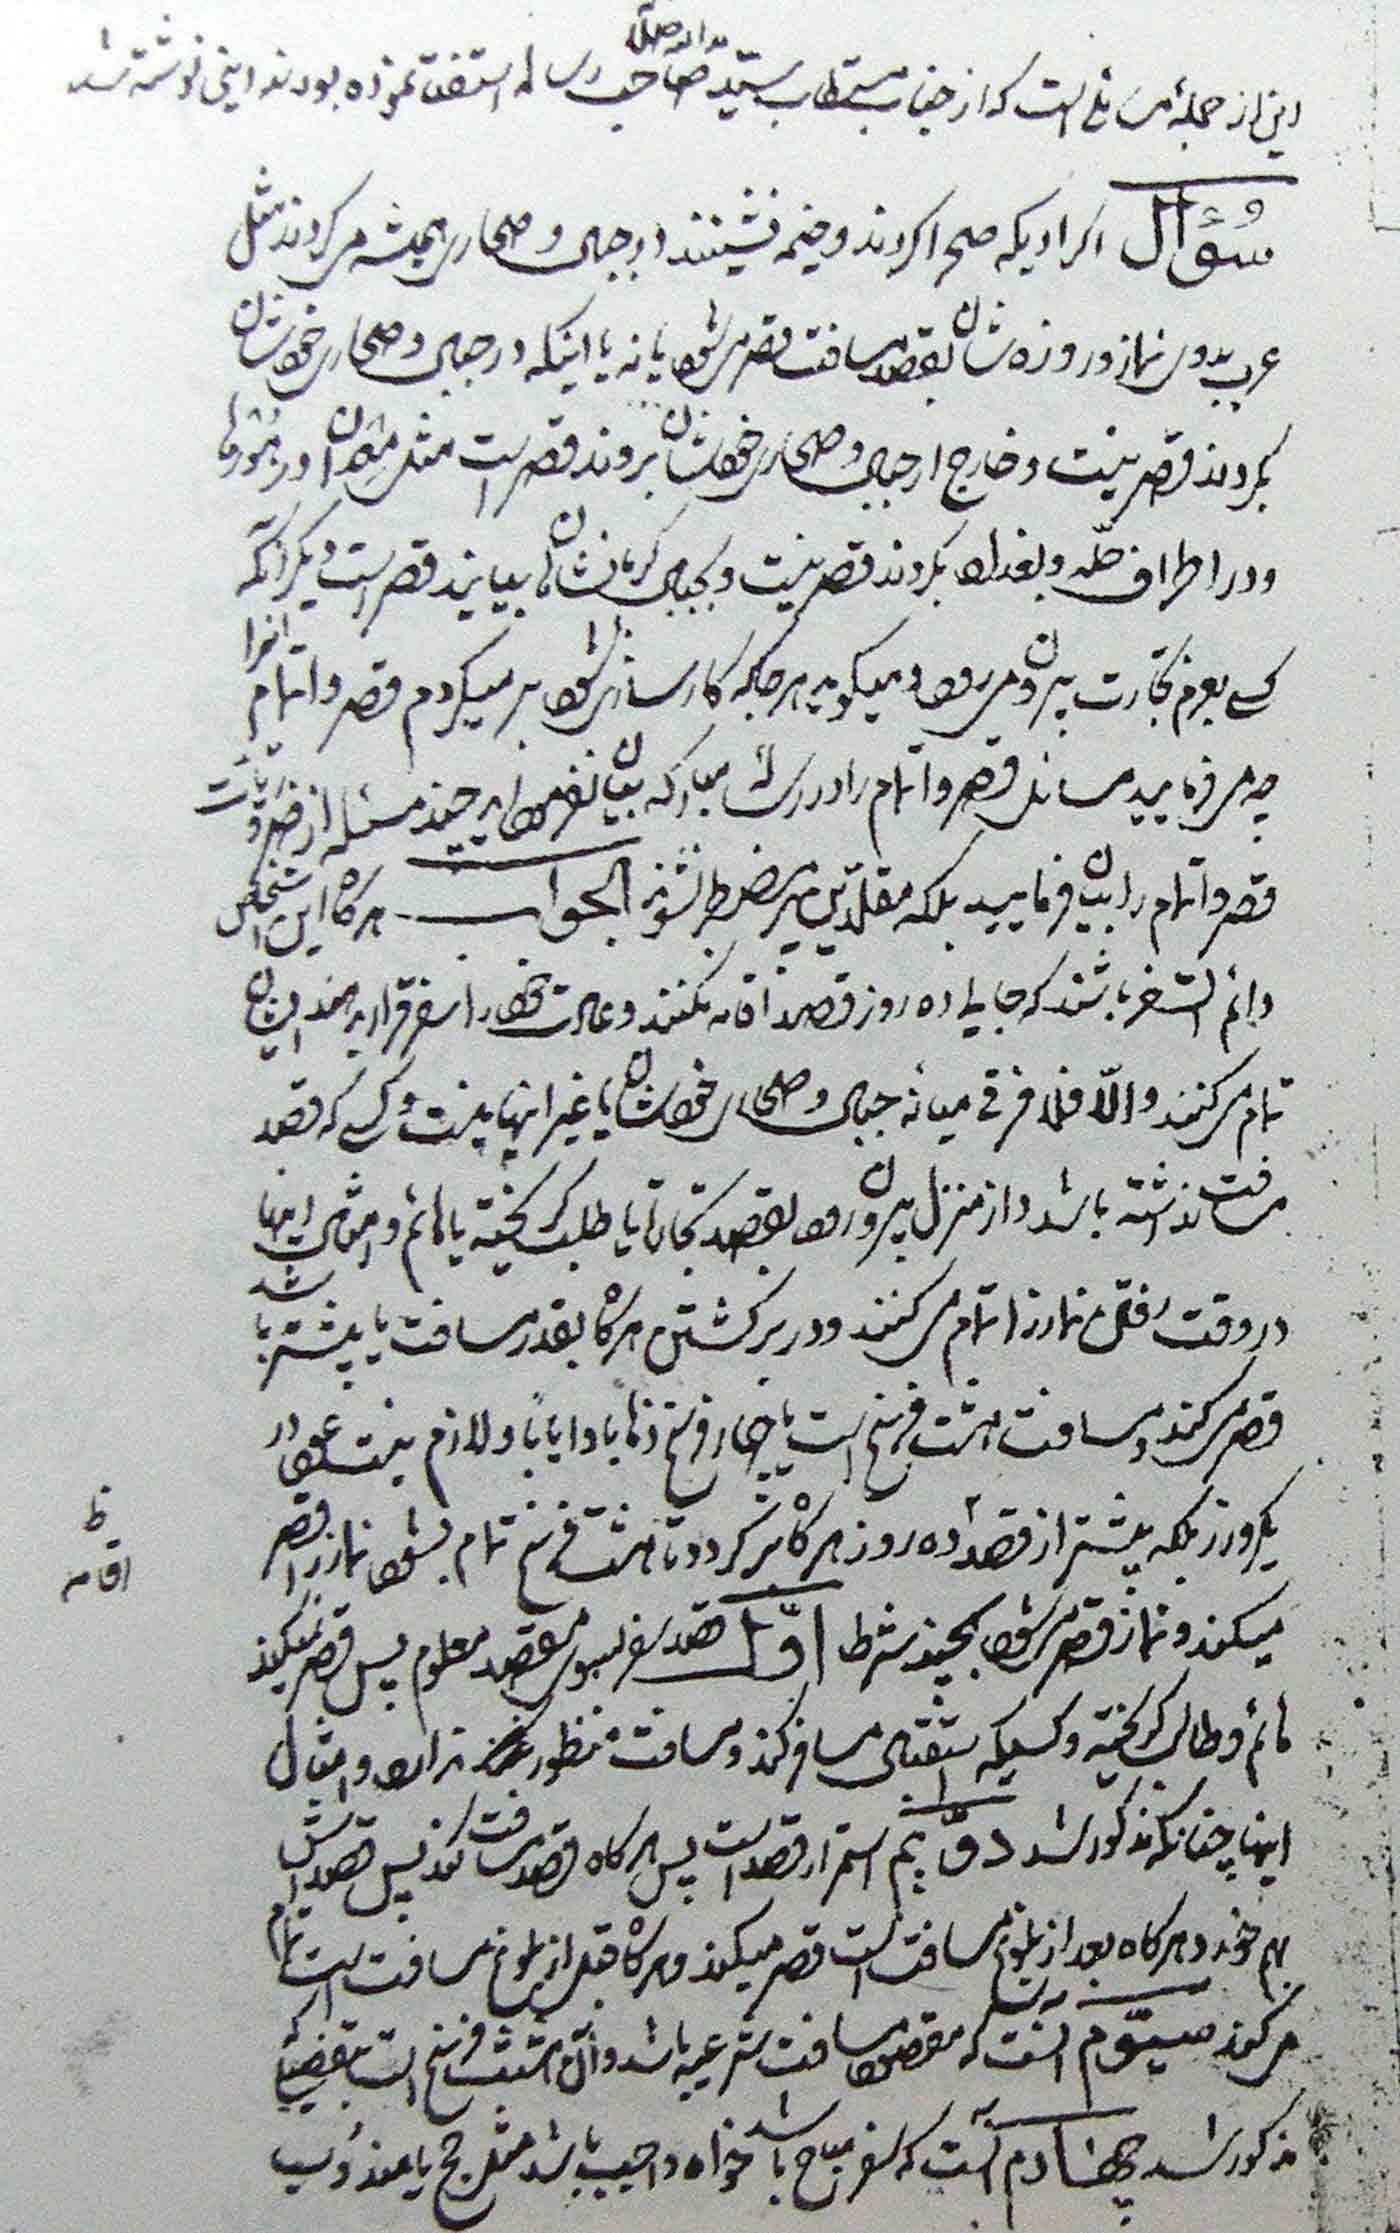 این از جمله مسائل است که از جناب مستطاب سید صاحب رساله استفتا نموده بودند اینجا نوشته شد
سُؤال اکرادیکه صحرا کردند و خیمه نشینند و در جبال و صحاری همیشه میکردند مثل
عرب بدوی نماز و روزه شان بقصد مسافت قصر میشود یا نه یا اینکه در جبال و صحاری خودشان
بکردند قصر نیست و خارج از جبال و صحاری خودشان بروند قصر است مثل در
و در اطراف حلّه و بغداد بکردند قصر نیست و بجبال کرمانشاهان بیایند قصر است دیکر آنکه
کسی بعزم تجارت بیرون میرود و میکوید هر جا که کارسازی شود بر میکردم قصر و اتمام انرا
چه میفرمایید مسائل قصر و اتمام را در رساله مبارکه بیان نفرموده اید چند مسئله از ضروریات
قصر و اتمام را بیان فرمایید بلکه مقلدین مضطر نشوند الجواب هرکاه این اشخاص
دائم السفر باشند که جایی ده روز قصد اقامه نکنند و عادت خود را سفر قرار بدهند ایشان
تمام میکنند و الّا فلا فرقی میانه جبال و صحاری خودشان یا غیر اینها نیست و کسی که قصد
مسافت نداشته باشد و از منزل بیرون رود بقصد تجارت یا طلب کریخته یا هائم و امثال اینها
در وقت رفتن نماز را تمام میکنند و در برکشتن هرکاه بقدر مسافت یا بیشتر باشد
قصر میکند و مسافت هشت فرسخ است یا چهار فرسخ ذهابا و ایابا و لازم نیست عود در
یکروز بلکه پیشتر از قصد ده روز هرکاه برکردد تا هشت فرسخ تمام بشود نماز را قصر
اقامه ظ
میکند و نماز قصر میشود بچند شرط اوّل قصد سفر بسوی مقصد معلوم پس قصر نمیکند
هائم و طالب کریخته و کسیکه استقبال مسافر کند و مسافت منظور ندارد و امثال
اینها چنانکه مذکور شد دوّیم استمرار قصد است پس هرکاه قصد مسافت کند پس قصدش
بهم خورد هرکاه بعد از بلوغ مسافت است قصر میکند و هرکاه قبل از بلوغ مسافت است تمام
میکند سیّوم آنست که مقصود مسافت شرعیه باشد و آن هشت فرسخ است بتفصیل
مذکور شد چهارم آنست که سفر مباح باشد خواه واجب باشد مثل حج یا مندوب